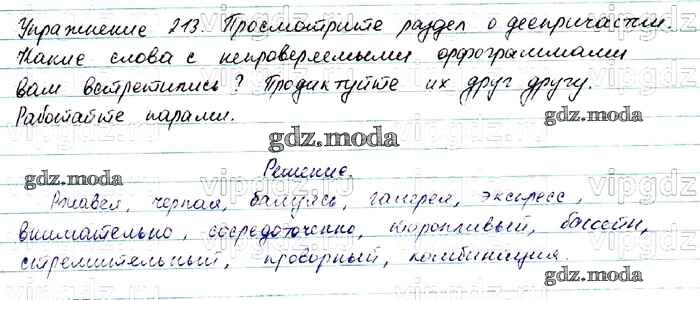 Упражнение 213. Просмотрите раздел о деепричастии.
Какие слова с непроверяемыми орфограммами
вам встретились? Продиктуйте их друг другу.
Работайте парами.
gdz.moda
Решение.
gdz.moda
Ржавея, черпая, балуясь, галерея, экспресс,
внимательно, сосредоточенно, кюропливый, бассейн,
gdz.moda
стремительный, проворный, комбинация.
gdz.moda
vipgdz